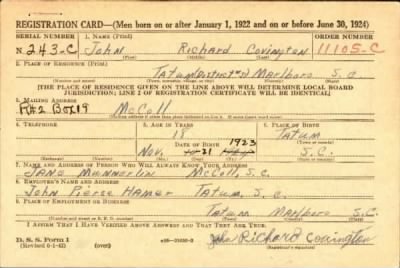 REGISTRATION CARD—(Men born on or after January 1, 1922 and on or before June 30, 1924)
SERIAL NUMBER 1. NAME (Print) ORDER NUMBER
N 243-C John Richard Covington 11105-C
(First) (Middle) (Last)
2. PLACE OF RESIDENCE (Print)
Tatum Marlboro S.C.
(Number and street) (Town, township, village, or city) (County) (State)
[THE PLACE OF RESIDENCE GIVEN ON THE LINE ABOVE WILL DETERMINE LOCAL BOARD
JURISDICTION; LINE 2 OF REGISTRATION CERTIFICATE WILL BE IDENTICAL]
3. MAILING ADDRESS
Box 19 McColl
[Mailing address if other than place indicated on line 2. If same insert word same]
4. TELEPHONE 5. AGE IN YEARS 6. PLACE OF BIRTH
18 Tatum
DATE OF BIRTH 1923 (Town or county)
Nov. 21 S.C.
(Exchange) (Number) (Mo.) (Day) (Yr.) (State or country)
7. NAME AND ADDRESS OF PERSON WHO WILL ALWAYS KNOW YOUR ADDRESS
Jane Munnerlin McColl, S.C.
8. EMPLOYER'S NAME AND ADDRESS
John Pierce Hamer Tatum, S.C.
9. PLACE OF EMPLOYMENT OR BUSINESS
Tatum Marlboro S.C.
(Number and street or R. F. D. number) (Town) (County) (State)
I AFFIRM THAT I HAVE VERIFIED ABOVE ANSWERS AND THAT THEY ARE TRUE.
D. S. S. Form 1
(Revised 6-1-42) (over) John Richard Covington
(Registrant's signature)